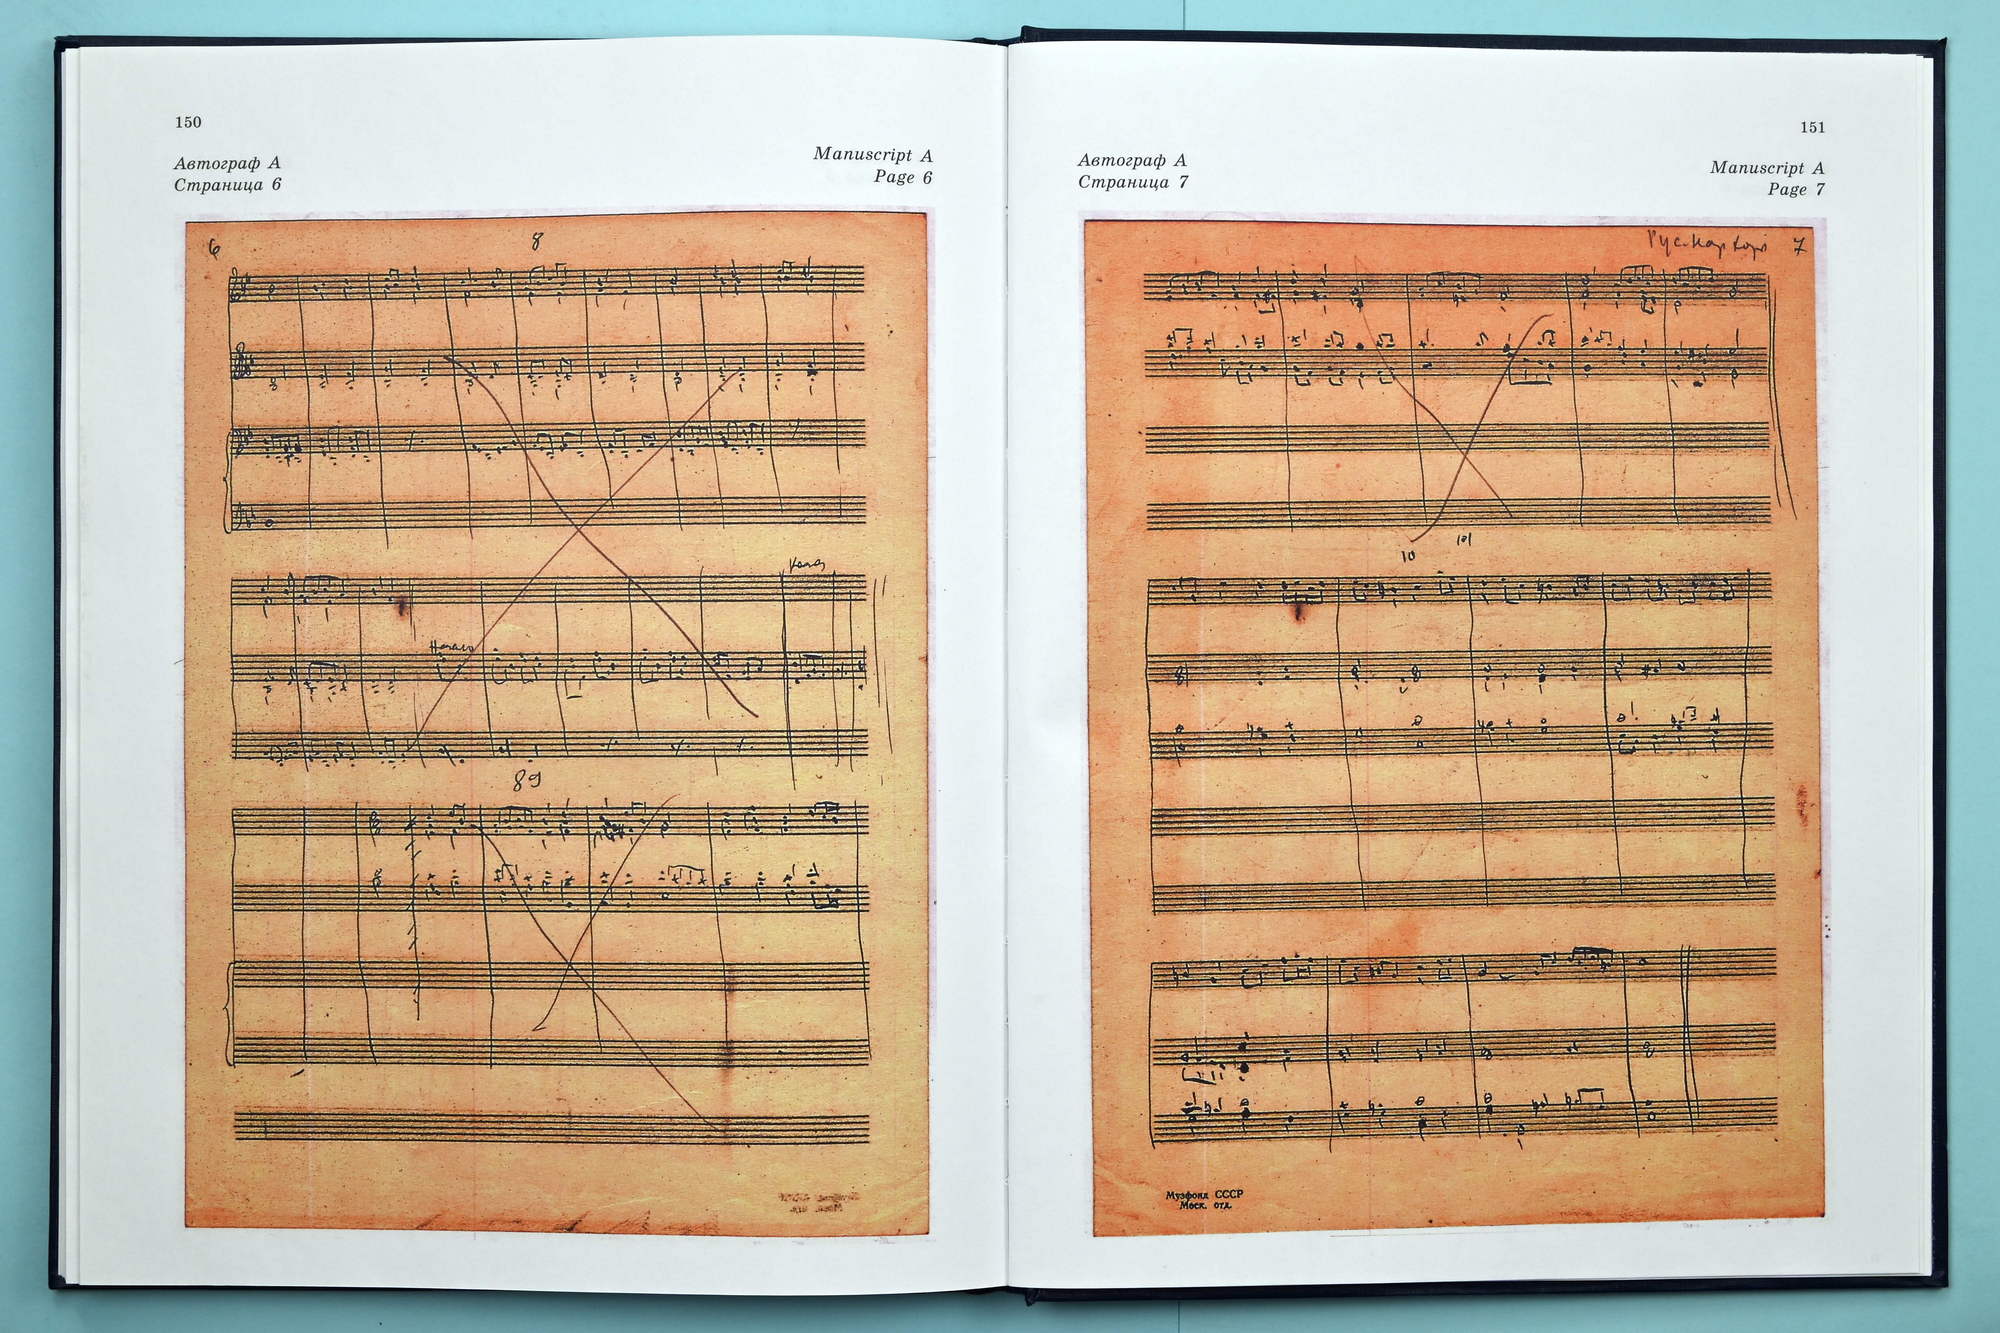 150
Автограф А
Страница 6
Manuscript A
Page 6
6
8
Начало
Конец
89
151
Автограф А
Страница 7
Manuscript A
Page 7
7
10
101
Музфонд СССР
Моск. отд.